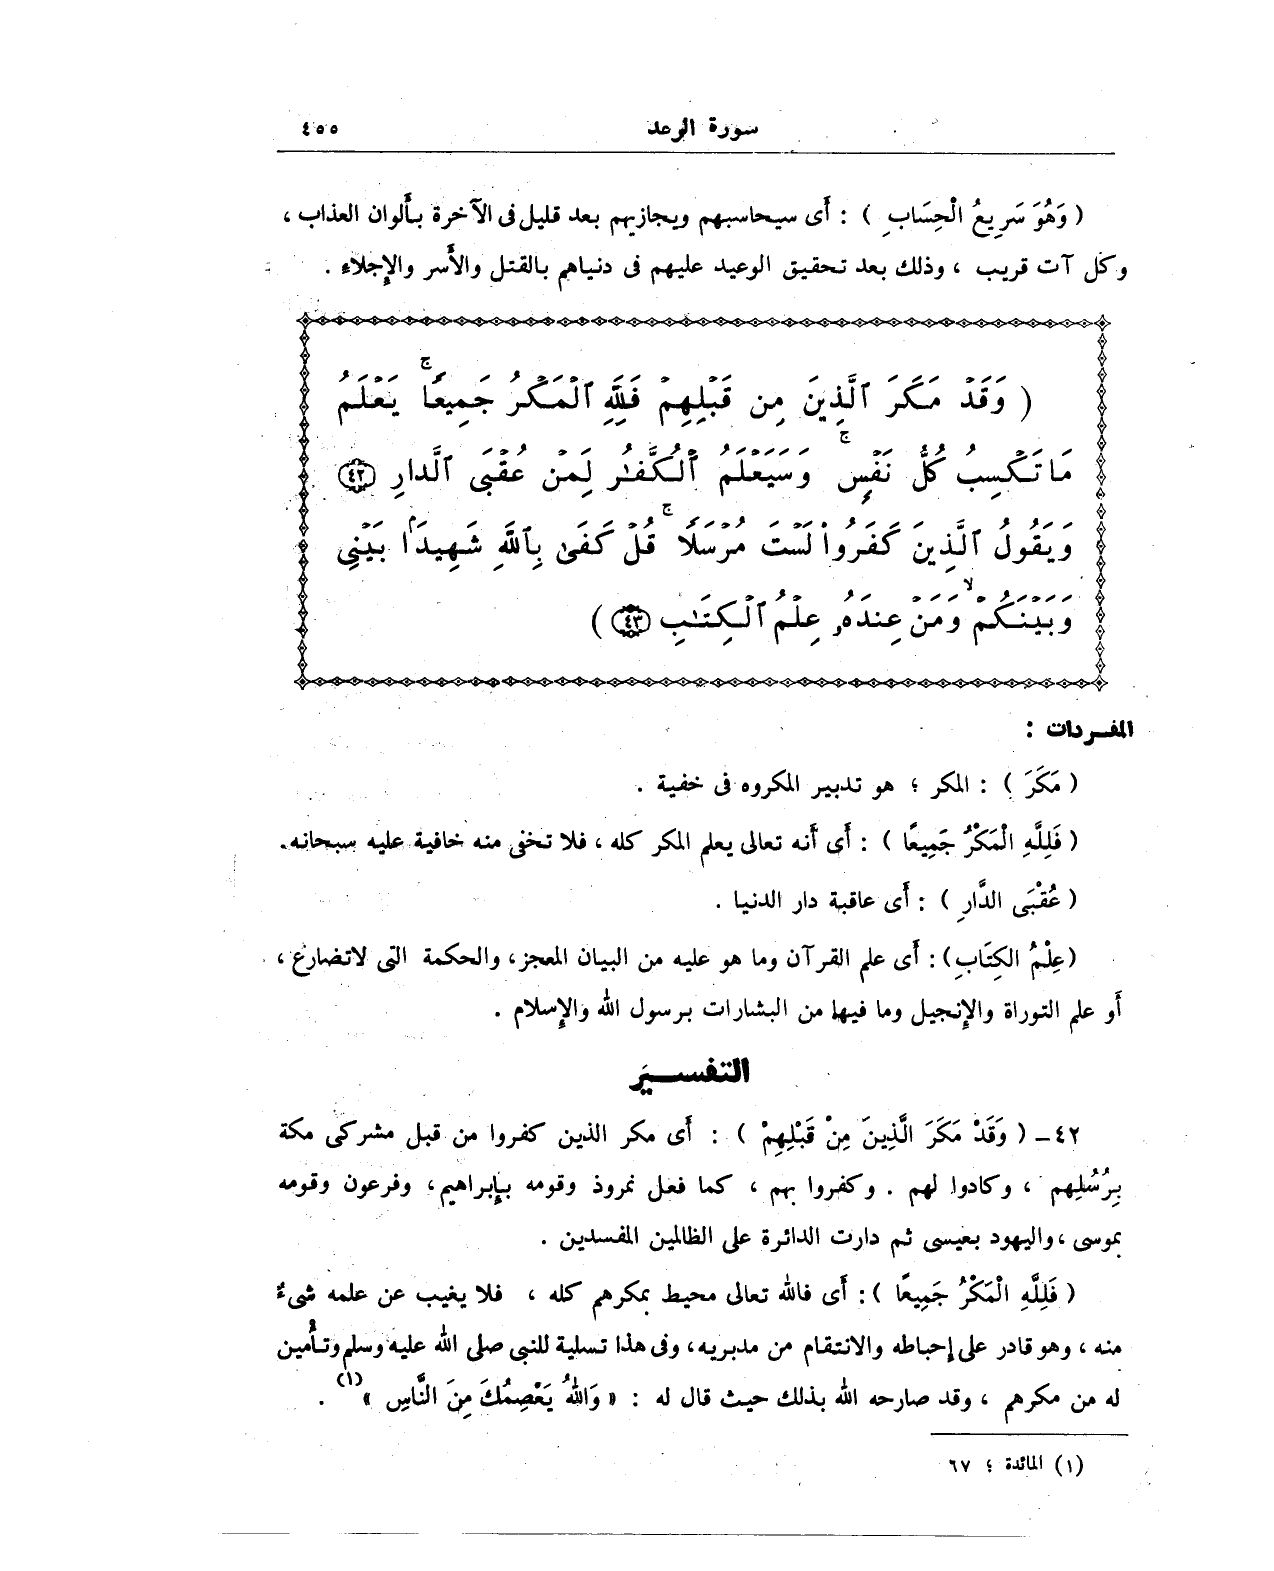 سورة الرعد ٤٥٥
( وَهُوَ سَرِيعُ الْحِسَابِ ) : أَى سيحاسبهم ويجازيهم بعد قليل فى الآخرة بأَلوان العذاب ،
وكل آت قريب ، وذلك بعد تحقيق الوعيد عليهم فى دنياهم بالقتل والأَسر والإِجلاء .
( وَقَدْ مَكَرَ ٱلَّذِينَ مِن قَبْلِهِمْ فَلِلَّهِ ٱلْمَكْرُ جَمِيعًا ۖ يَعْلَمُ
مَا تَكْسِبُ كُلُّ نَفْسٍ ۗ وَسَيَعْلَمُ ٱلْكُفَّٰرُ لِمَنْ عُقْبَى ٱلدَّارِ ٤٢
وَيَقُولُ ٱلَّذِينَ كَفَرُوا۟ لَسْتَ مُرْسَلًا ۚ قُلْ كَفَىٰ بِٱللَّهِ شَهِيدًۢا بَيْنِى
وَبَيْنَكُمْ ۙ وَمَنْ عِندَهُۥ عِلْمُ ٱلْكِتَٰبِ ٤٣ )
المفردات :
( مَكَرَ ) : المكر ؛ هو تدبير المكروه فى خفية .
( فَلِلَّهِ الْمَكْرُ جَمِيعًا ) : أَى أَنه تعالى يعلم المكر كله ، فلا تخفى منه خافية عليه سبحانه.
( عُقْبَى الدَّارِ ) : أَى عاقبة دار الدنيا .
(عِلْمُ الكِتَابِ) : أَى علم القرآن وما هو عليه من البيان المعجز، والحكمة التى لاتضارع ،
أَو علم التوراة والإِنجيل وما فيها من البشارات برسول الله والإِسلام .
التفســـير
٤٢ - ( وَقَدْ مَكَرَ الَّذِينَ مِنْ قَبْلِهِمْ ) : أَى مكر الذين كفروا من قبل مشركى مكة
بِرُسُلِهِم ، وكادوا لهم . وكفروا بهم ، كما فعل نمروذ وقومه بإِبراهيم، وفرعون وقومه
بموسى ، واليهود بعيسى ثم دارت الدائرة على الظالمين المفسدين .
( فَلِلَّهِ الْمَكْرُ جَمِيعًا ) : أَى فالله تعالى محيط بمكرهم كله ، فلا يغيب عن علمه شىءٌ
منه ، وهو قادر على إحباطه والانتقام من مدبريه، وفى هذا تسلية للنبى صلى الله عليه وسلم وتأْمين
له من مكرهم ، وقد صارحه الله بذلك حيث قال له : « وَاللهُ يَعْصِمُكَ مِنَ النَّاسِ »(١) .
(١) المائدة ؛ ٦٧